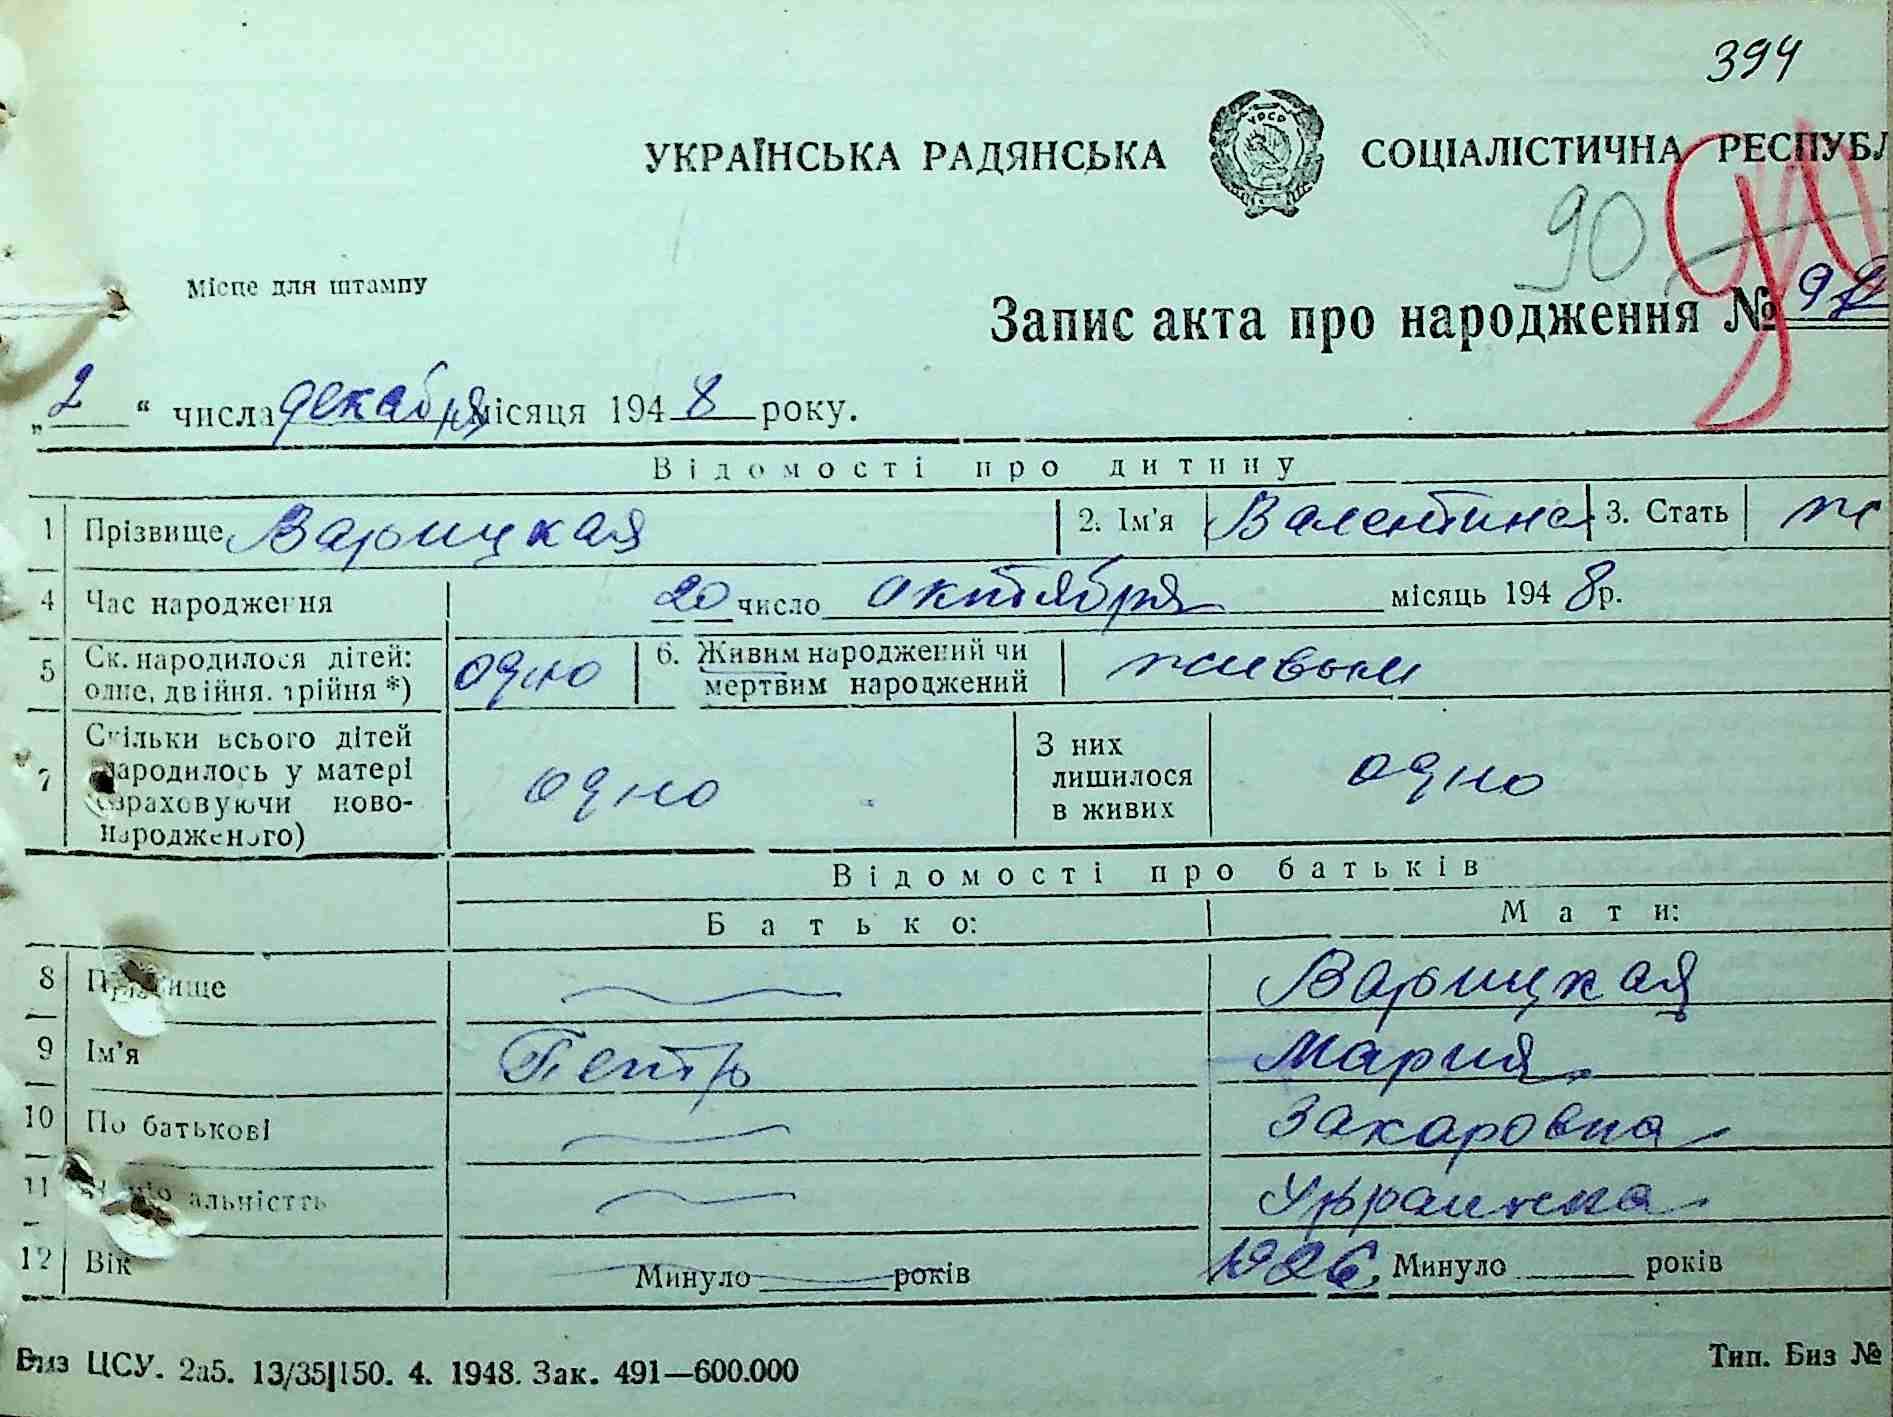 394
УКРАЇНСЬКА РАДЯНСЬКА СОЦІАЛІСТИЧНА РЕСПУБЛ
УРСР
90
Місце для штампу
Запис акта про народження №
„2“ числа декабря місяця 1948 року.
Відомості про дитину
1 Прізвище Варицкая 2. Ім'я Валентина 3. Стать ж
4 Час народження 20 число октября місяць 1948 р.
5 Ск. народилося дітей: одне, двійня, трійня *) одно 6. Живим народжений чи мертвим народжений живым
7 Скільки всього дітей народилось у матері (враховуючи ново-народженого) одно З них лишилося в живих одно
Відомості про батьків
Батько: Мати:
8 Прізвище Варицкая
9 Ім'я Петр Мария
10 По батькові Захаровна
11 Національність Украинка
12 Вік Минуло років 1926 Минуло років
Виз ЦСУ. 2а5. 13/35|150. 4. 1948. Зак. 491—600.000 Тип. Виз №